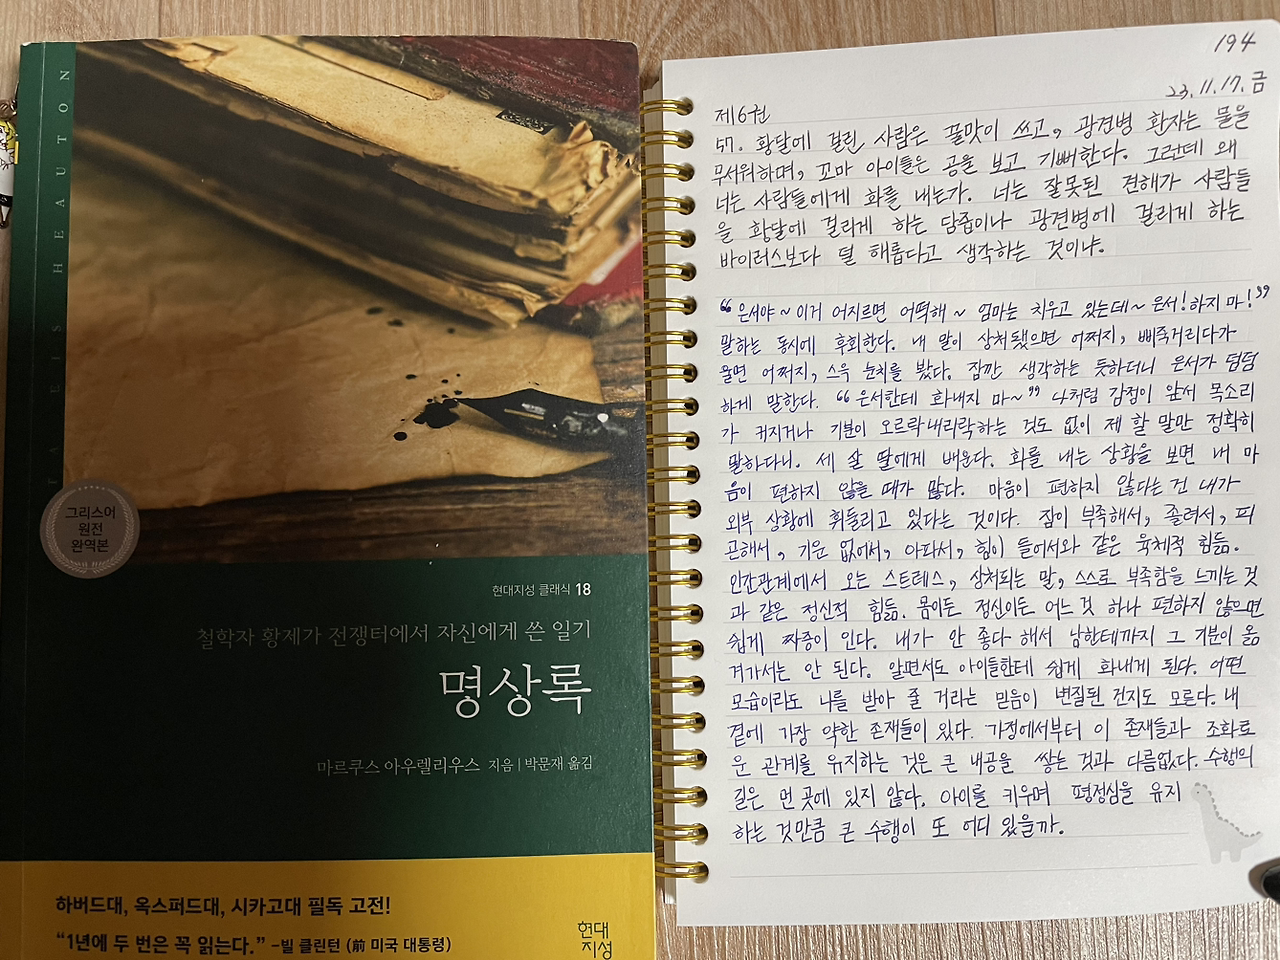 TA EIS HEAUTON
그리스어
원전
완역본
현대지성 클래식 18
철학자 황제가 전쟁터에서 자신에게 쓴 일기
명상록
마르쿠스 아우렐리우스 지음 | 박문재 옮김
하버드대, 옥스퍼드대, 시카고대 필독 고전!
“1년에 두 번은 꼭 읽는다.” –빌 클린턴 (前 미국 대통령)
현대
지성
194
23. 11. 17. 금
제6권
57. 황달에 걸린 사람은 꿀맛이 쓰고, 광견병 환자는 물을
무서워하며, 꼬마 아이들은 공을 보고 기뻐한다. 그런데 왜
너는 사람들에게 화를 내는가. 너는 잘못된 견해가 사람들
을 황달에 걸리게 하는 담즙이나 광견병에 걸리게 하는
바이러스보다 덜 해롭다고 생각하는 것이냐.
“은서야~ 이거 어지르면 어떡해~ 엄마는 치우고 있는데~ 은서! 하지 마!”
말하는 동시에 후회한다. 내 말이 상처됐으면 어쩌지, 삐죽거리다가
울면 어쩌지, 스윽 눈치를 봤다. 잠깐 생각하는 듯하더니 은서가 덤덤
하게 말한다. “은서한테 화내지 마~” 나처럼 감정이 앞서 목소리
가 커지거나 기분이 오르락내리락하는 것도 없이 제 할 말만 정확히
말하다니. 세 살 딸에게 배운다. 화를 내는 상황을 보면 내 마
음이 편하지 않을 때가 많다. 마음이 편하지 않다는 건 내가
외부 상황에 휘둘리고 있다는 것이다. 잠이 부족해서, 졸려서, 피
곤해서, 기운 없어서, 아파서, 힘이 들어서와 같은 육체적 힘듦.
인간관계에서 오는 스트레스, 상처되는 말, 스스로 부족함을 느끼는 것
과 같은 정신적 힘듦. 몸이든 정신이든 어느 것 하나 편하지 않으면
쉽게 짜증이 인다. 내가 안 좋다 해서 남한테까지 그 기분이 옮
겨가서는 안 된다. 알면서도 아이들한테 쉽게 화내게 된다. 어떤
모습이라도 나를 받아 줄 거라는 믿음이 변질된 건지도 모른다. 내
곁에 가장 약한 존재들이 있다. 가정에서부터 이 존재들과 조화로
운 관계를 유지하는 것은 큰 내공을 쌓는 것과 다름없다. 수행의
길은 먼 곳에 있지 않다. 아이를 키우며 평정심을 유지
하는 것만큼 큰 수행이 또 어디 있을까.